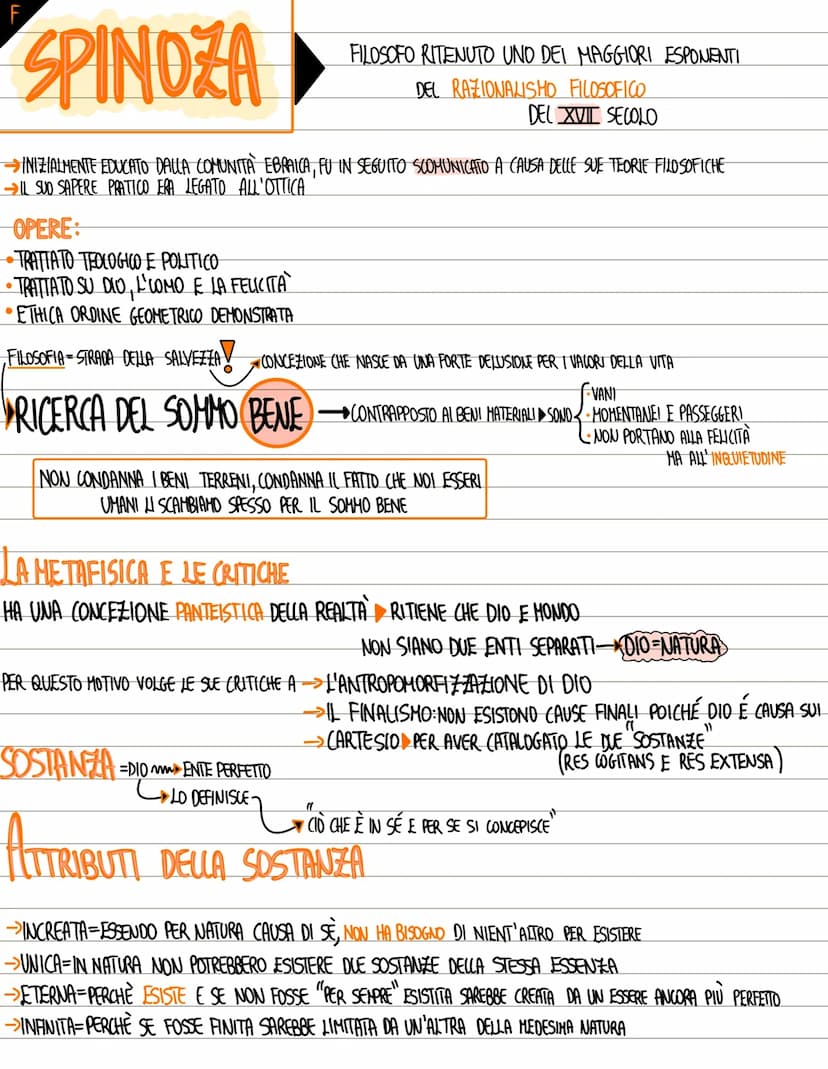 F
SPINOZA
FILOSOFO RITENUTO UNO DEI MAGGIORI ESPONENTI
DEL RAZIONALISMO FILOSOFICO
DEL XVII SECOLO
→ INIZIALMENTE EDUCATO DALLA COMUNITÀ EBRAICA, FU IN SEGUITO SCOMUNICATO A CAUSA DELLE SUE TEORIE FILOSOFICHE
→ IL SUO SAPERE PRATICO ERA LEGATO ALL'OTTICA
OPERE:
• TRATTATO TEOLOGICO E POLITICO
• TRATTATO SU DIO, L'UOMO E LA FELICITÀ
• ETHICA ORDINE GEOMETRICO DEMONSTRATA
FILOSOFIA = STRADA DELLA SALVEZZA ! CONCEZIONE CHE NASCE DA UNA FORTE DELUSIONE PER I VALORI DELLA VITA
RICERCA DEL SOMMO BENE → CONTRAPPOSTO AI BENI MATERIALI ▶ SONO
• VANI
• MOMENTANEI E PASSEGGERI
• NON PORTANO ALLA FELICITÀ
MA ALL'INQUIETUDINE
NON CONDANNA I BENI TERRENI, CONDANNA IL FATTO CHE NOI ESSERI
UMANI LI SCAMBIAMO SPESSO PER IL SOMMO BENE
LA METAFISICA E LE CRITICHE
HA UNA CONCEZIONE PANTEISTICA DELLA REALTÀ ▶ RITIENE CHE DIO E MONDO
NON SIANO DUE ENTI SEPARATI → DIO=NATURA
PER QUESTO MOTIVO VOLGE LE SUE CRITICHE A → L'ANTROPOMORFIZZAZIONE DI DIO
→ IL FINALISMO: NON ESISTONO CAUSE FINALI POICHÉ DIO É CAUSA SUI
→ CARTESIO ▶ PER AVER CATALOGATO LE DUE "SOSTANZE"
(RES COGITANS E RES EXTENSA)
SOSTANZA = DIO → ENTE PERFETTO
→ LO DEFINISCE
"CIÒ CHE È IN SÉ E PER SE SI CONCEPISCE"
ATTRIBUTI DELLA SOSTANZA
→ INCREATA = ESSENDO PER NATURA CAUSA DI SÈ, NON HA BISOGNO DI NIENT'ALTRO PER ESISTERE
→ UNICA = IN NATURA NON POTREBBERO ESISTERE DUE SOSTANZE DELLA STESSA ESSENZA
→ ETERNA = PERCHÈ ESISTE E SE NON FOSSE "PER SEMPRE" ESISTITA SAREBBE CREATA DA UN ESSERE ANCORA PIÙ PERFETTO
→ INFINITA = PERCHÈ SE FOSSE FINITA SAREBBE LIMITATA DA UN'ALTRA DELLA MEDESIMA NATURA